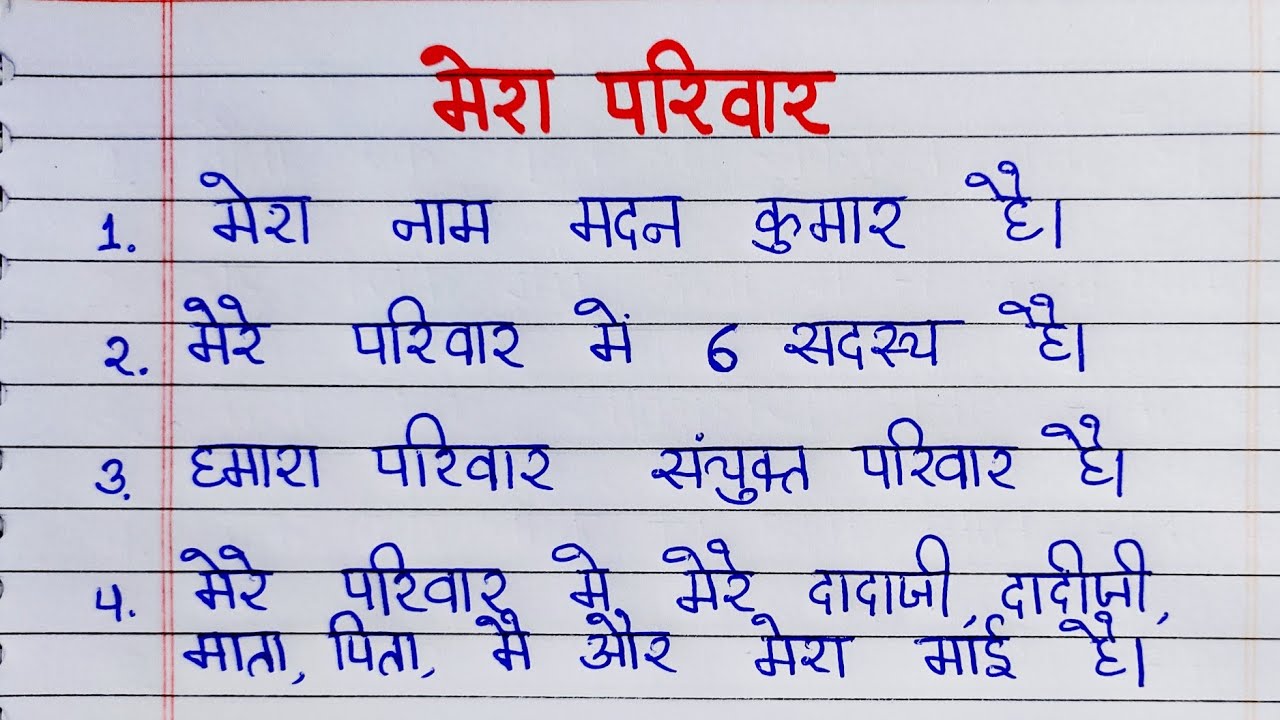 मेरा परिवार
1. मेरा नाम मदन कुमार है।
2. मेरे परिवार में 6 सदस्य है।
3. हमारा परिवार संयुक्त परिवार है।
4. मेरे परिवार मे मेरे दादाजी, दादीजी,
माता, पिता, मै और मेरा भाई है।